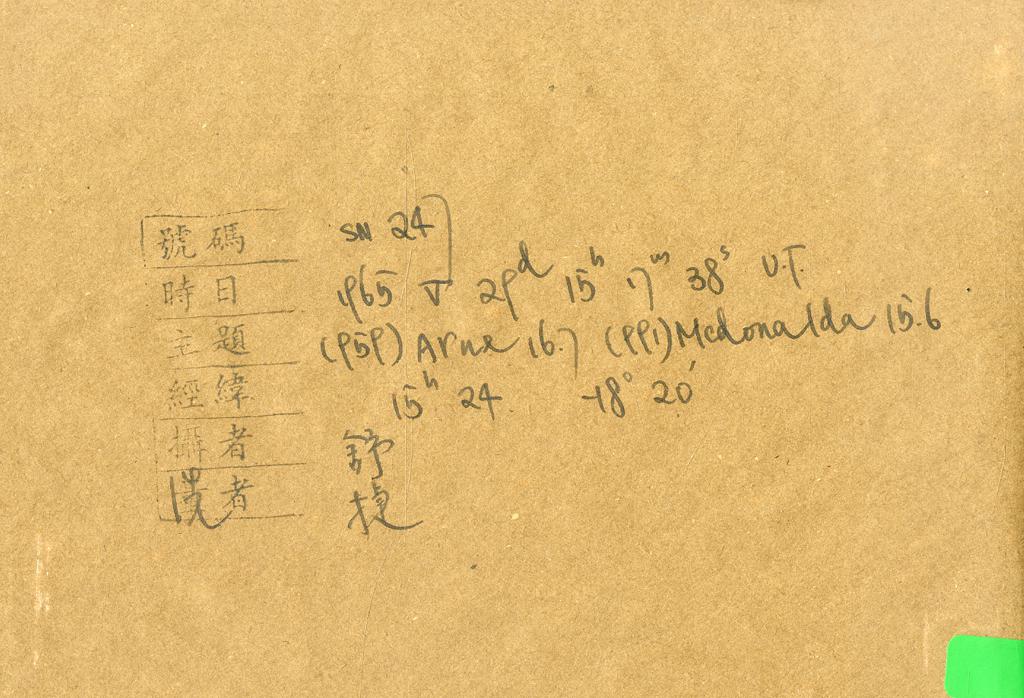 號碼 SN 24
時日 1965 V 29d 15h 17m 38s U.T.
主題 (959) Arne 16.7 (991) Mcdonalda 15.6
經緯 15h 24 -18° 20'
攝者 舒
洗者 楨